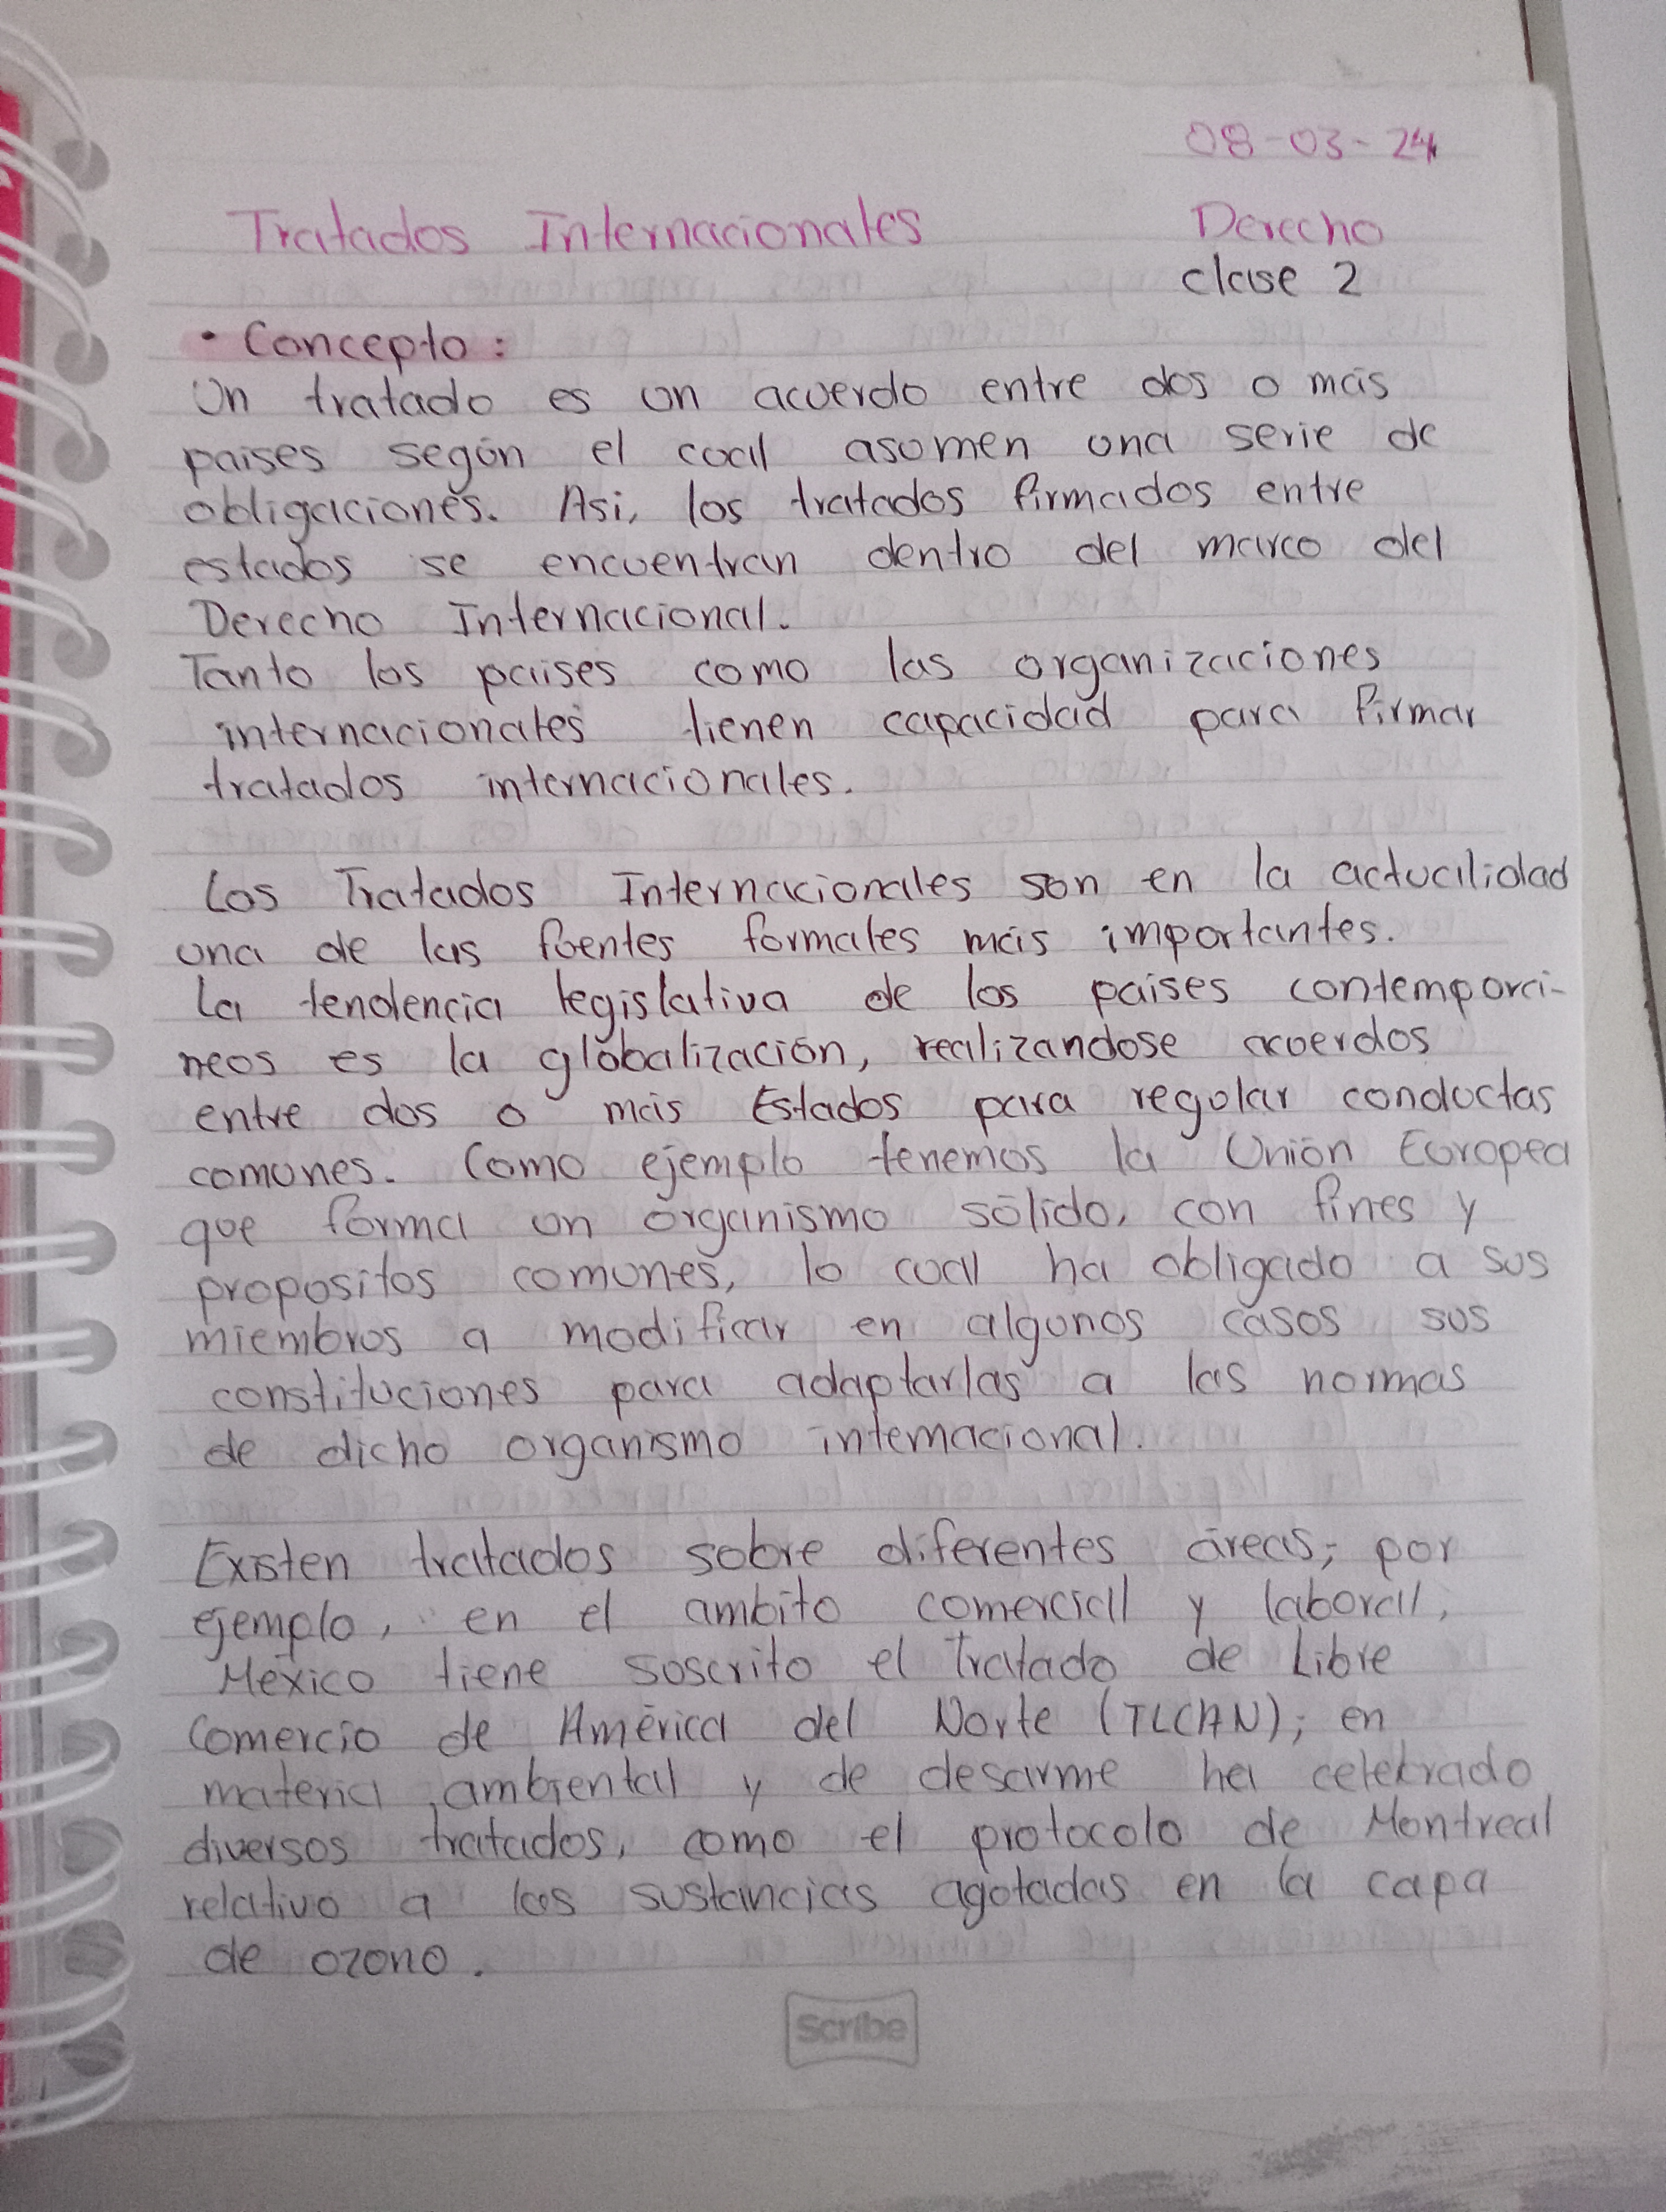 08-03-24
Tratados Internacionales Derecho
clase 2
• Concepto:
Un tratado es un acuerdo entre dos o más
paises según el cual asumen una serie de
obligaciones. Asi, los tratados firmados entre
estados se encuentran dentro del marco del
Derecho Internacional.
Tanto los paises como las organizaciones
internacionales tienen capacidad para firmar
tratados internacionales.
Los Tratados Internacionales son en la actualidad
una de las fuentes formales más importantes.
La tendencia legislativa de los paises contemporá-
neos es la globalización, realizandose acuerdos
entre dos o más Estados para regular conductas
comunes. Como ejemplo tenemos la Unión Europea
que forma un organismo sólido, con fines y
propositos comunes, lo cual ha obligado a sus
miembros a modificar en algunos casos sus
constituciones para adaptarlas a las normas
de dicho organismo internacional.
Existen tratados sobre diferentes áreas; por
ejemplo, en el ambito comercial y laboral,
México tiene suscrito el Tratado de Libre
Comercio de América del Norte (TLCAN); en
materia ambiental y de desarme ha celebrado
diversos tratados, como el protocolo de Montreal
relativo a las sustancias agotadas en la capa
de ozono.
Scribe